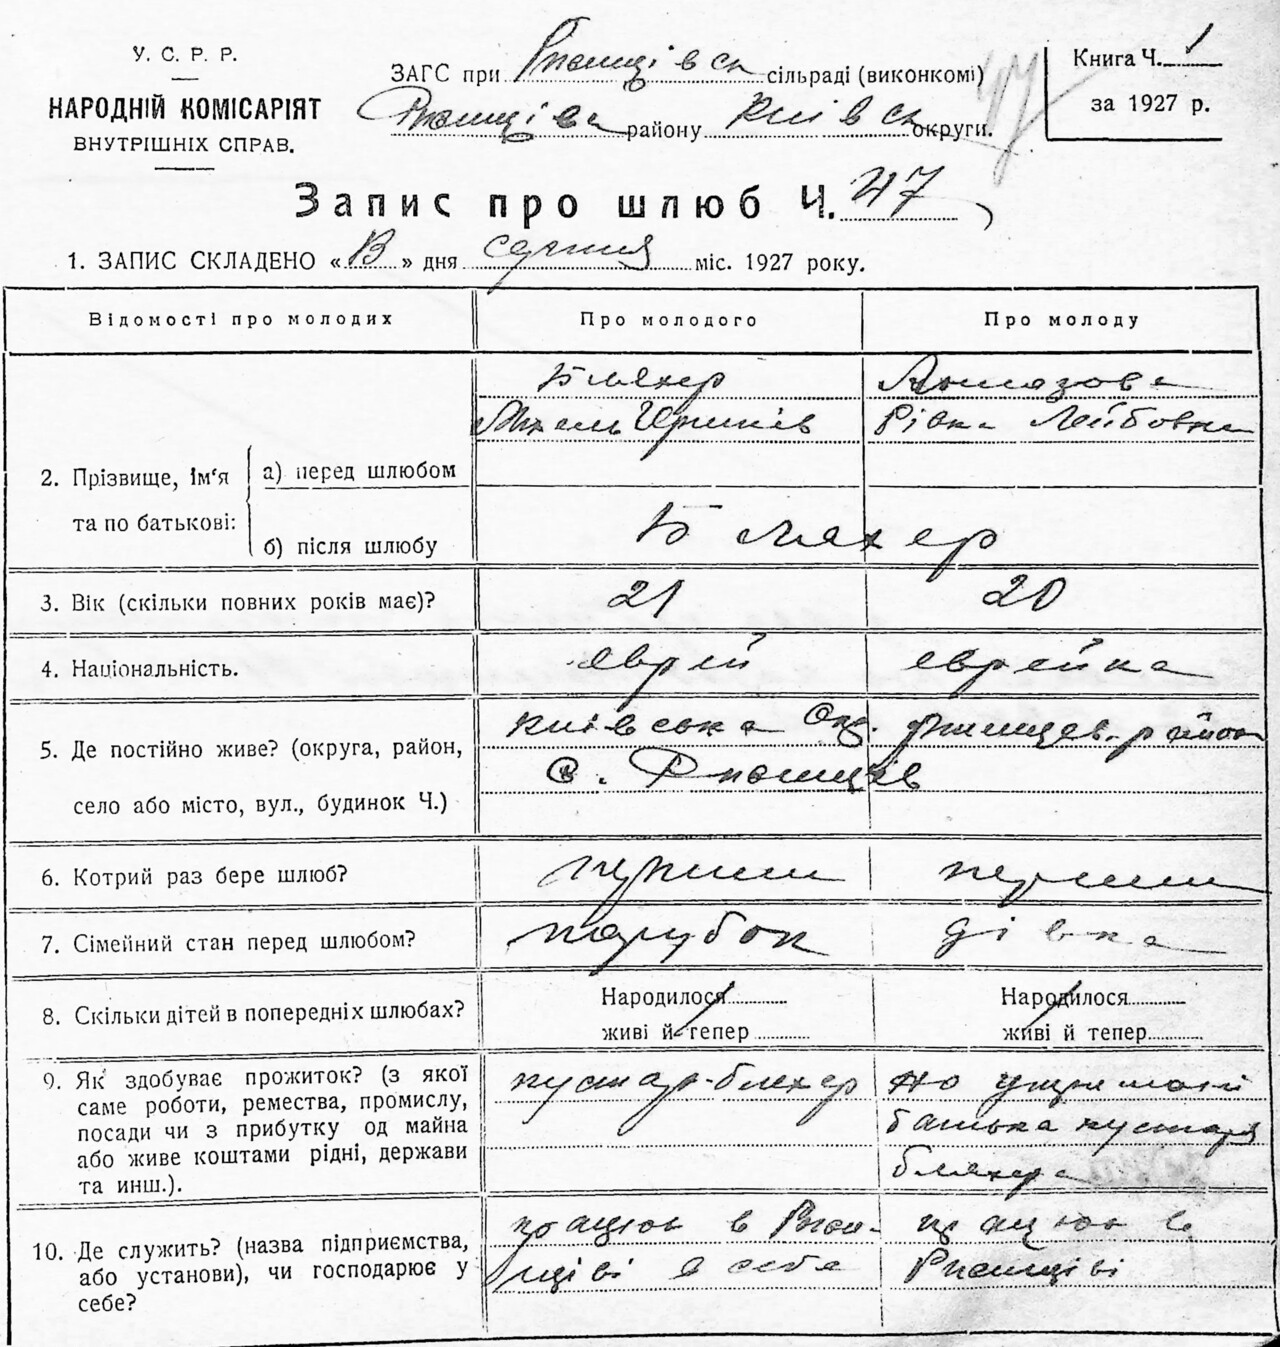 У. С. Р. Р.
НАРОДНІЙ КОМІСАРІЯТ
ВНУТРІШНІХ СПРАВ.
ЗАГС при Ржищівськ сільраді (виконкомі)
Ржищівськ району Київськ округи.
47
Книга Ч. 1
за 1927 р.
Запис про шлюб Ч. 47
1. ЗАПИС СКЛАДЕНО « » дня серпня міс. 1927 року.
Відомості про молодих Про молодого Про молоду
2. Прізвище, ім'я та по батькові:
а) перед шлюбом
Бляхер
Рівка Лейбовна
б) після шлюбу
Бляхер
3. Вік (скільки повних років має)? 21 20
4. Національність. єврей єврейка
5. Де постійно живе? (округа, район,
село або місто, вул., будинок Ч.)
Київська Окр. Ржищев. район
с. Ржищів
6. Котрий раз бере шлюб? перший перший
7. Сімейний стан перед шлюбом? парубок дівка
8. Скільки дітей в попередніх шлюбах?
Народилося
живі й тепер
Народилося
живі й тепер
9. Як здобуває прожиток? (з якої
саме роботи, ремества, промислу,
посади чи з прибутку од майна
або живе коштами рідні, держави
та инш.).
кустар-бляхер
на утриманні
батька кустаря
бляхера
10. Де служить? (назва підприємства,
або установи), чи господарює у
себе?
працює в Ржи-
щіві в себе
працює в
Ржищіві